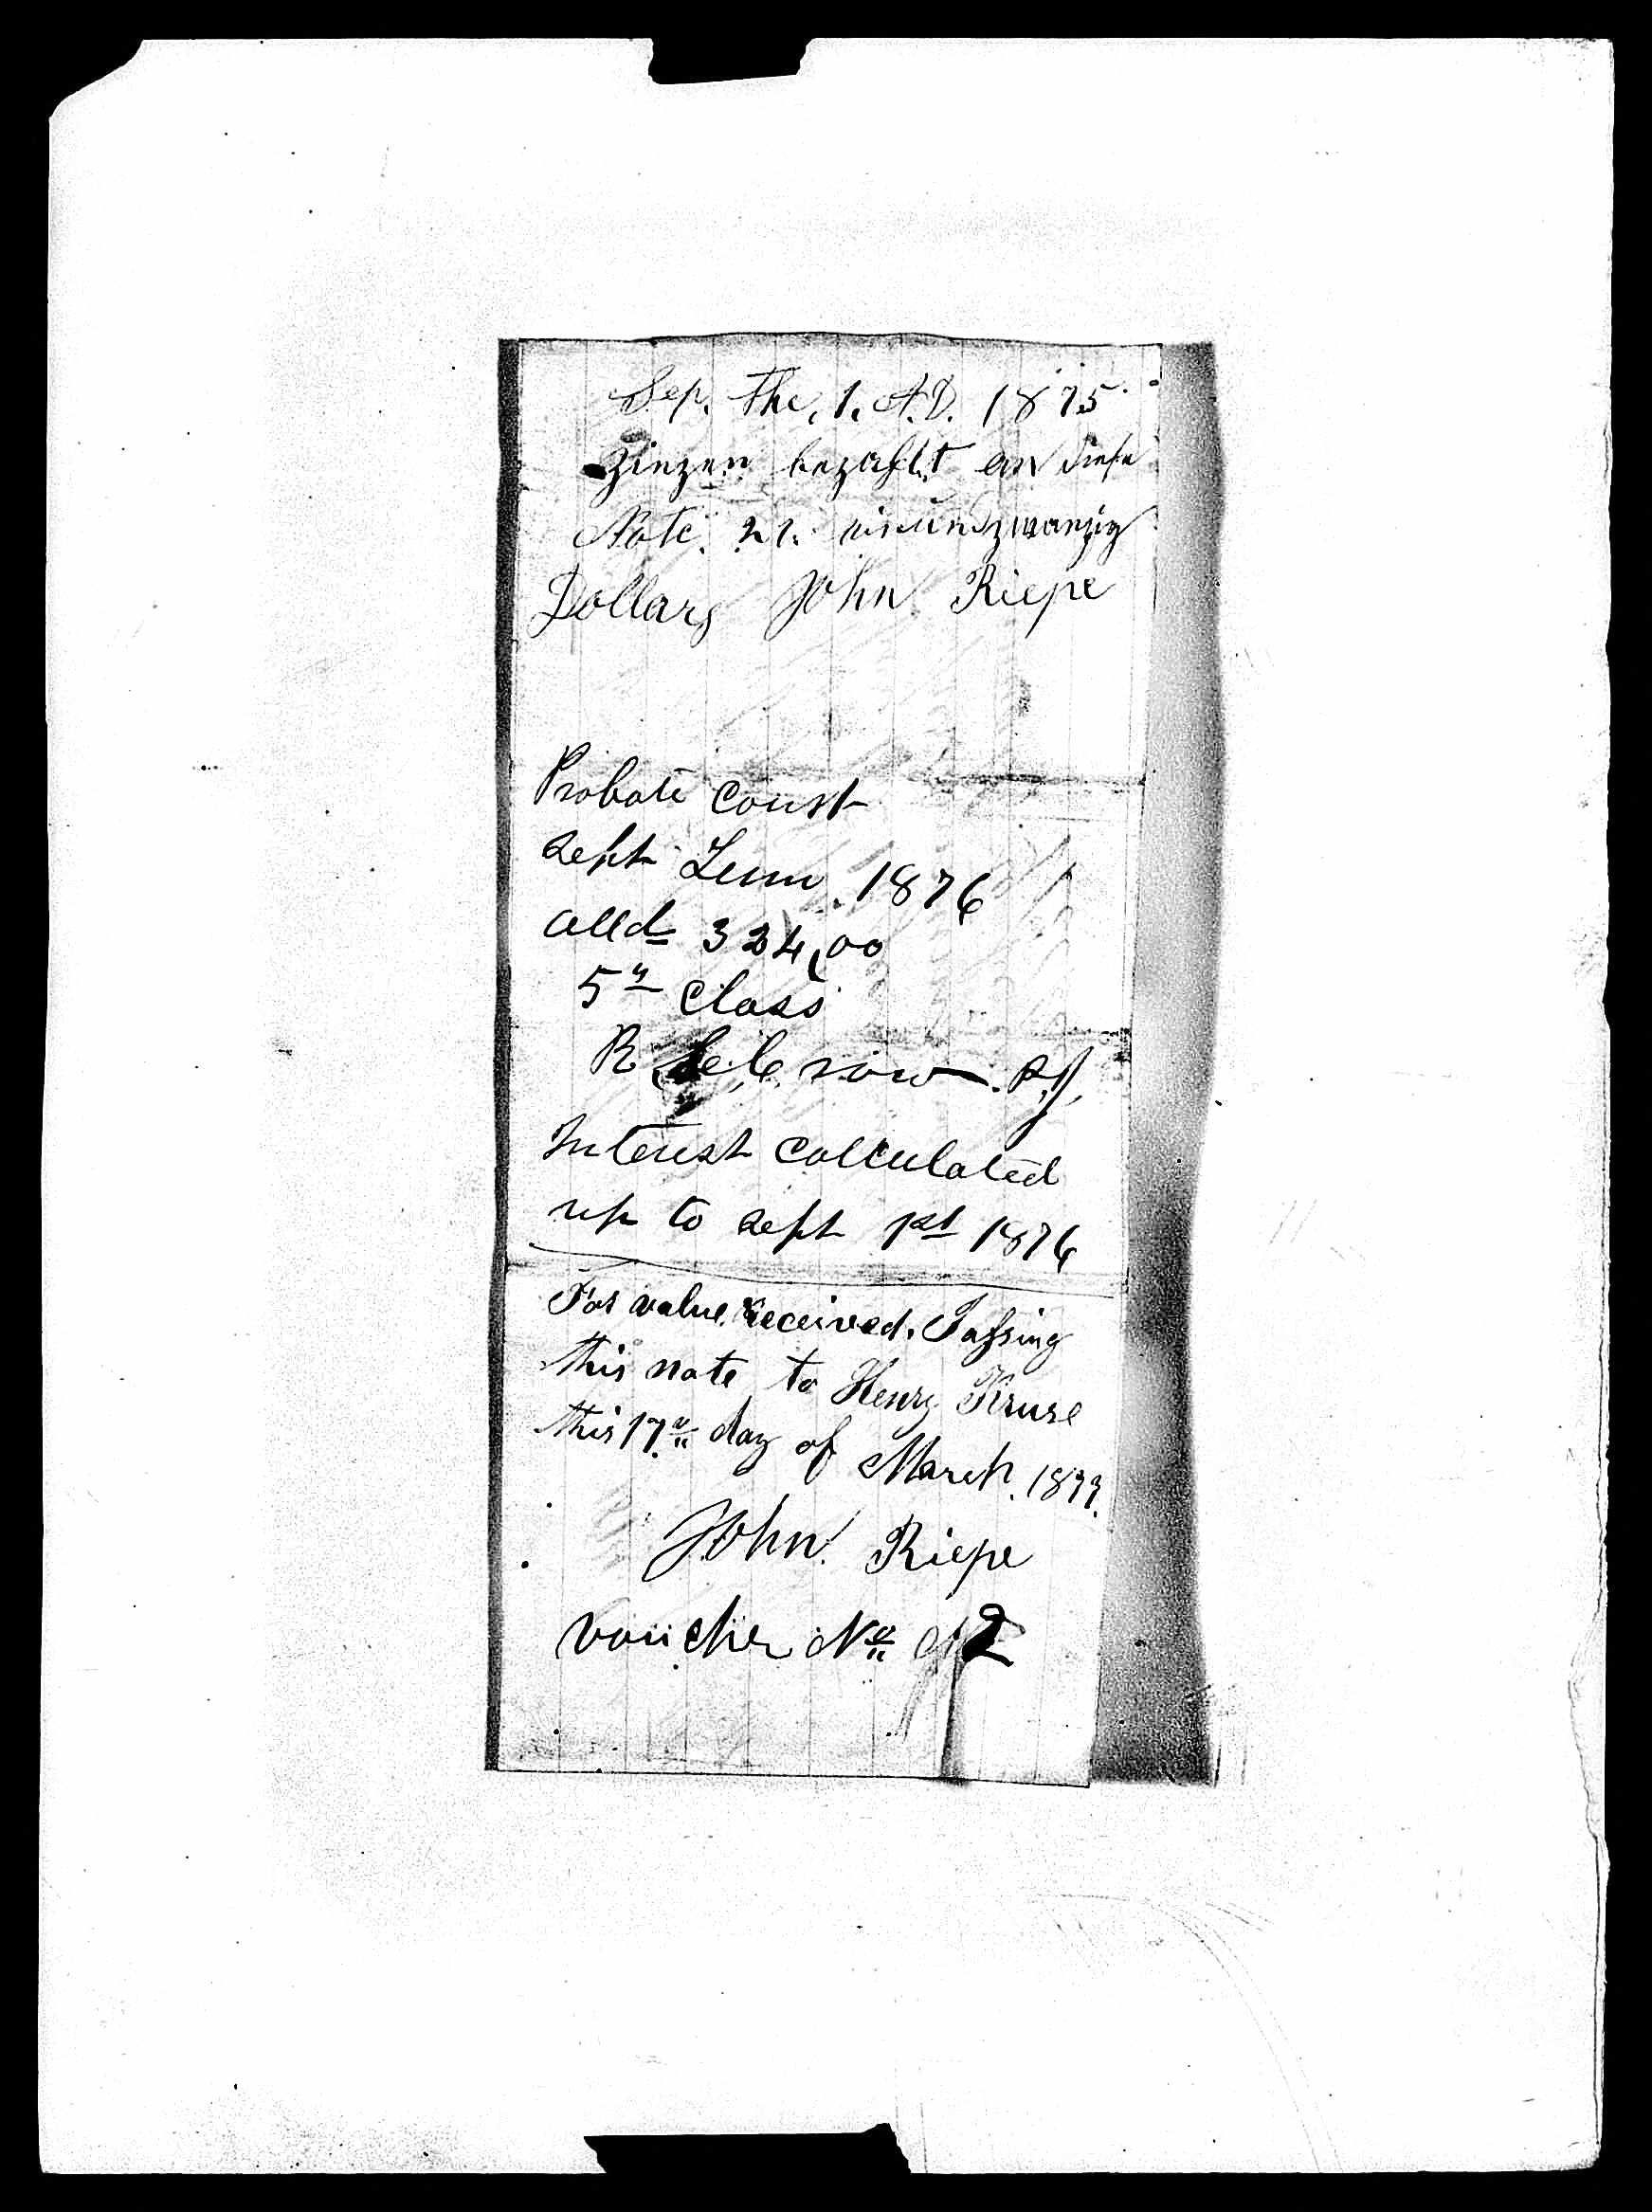 Sep. The, 1. A.D. 1875
Zinzen bezahlt an diese
Note. 21. einundzwanzig
Dollars John Riepe
Probate Court
Sept Term 1876
alld 324,00
5th Class
R P.J.
Interest Calculated
up to Sept 1st 1876
For value received. I assing
this note to Henry Kruse
this 17th day of March 1877.
John Riepe
Voucher No 2